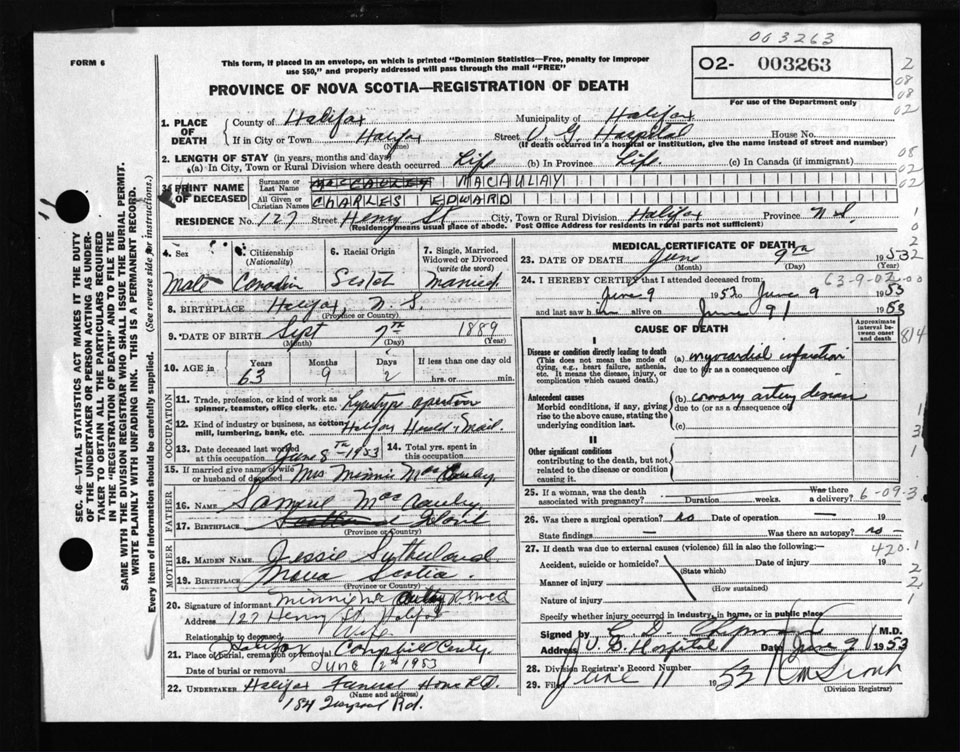 003263
FORM 6
This form, if placed in an envelope, on which is printed "Dominion Statistics—Free, penalty for improper
use $50," and properly addressed will pass through the mail "FREE"
O2- 003263
2
08
08
02
For use of the Department only
PROVINCE OF NOVA SCOTIA—REGISTRATION OF DEATH
1. PLACE OF DEATH
County of Halifax Municipality of Halifax
If in City or Town Halifax Street V G Hospital House No.
(Name) (If death occurred in a hospital or institution, give the name instead of street and number)
2. LENGTH OF STAY (in years, months and days)
(a) In City, Town or Rural Division where death occurred Life (b) In Province Life. (c) In Canada (if immigrant)
08
02
02
3. PRINT NAME OF DECEASED
Surname or Last Name MACAULAY
All Given or Christian Names CHARLES EDWARD
RESIDENCE No. 127 Street Henry St. City, Town or Rural Division Halifax Province N S.
(Residence means usual place of abode. Post Office Address for residents in rural parts not sufficient)
4. Sex 5. Citizenship (Nationality) 6. Racial Origin 7. Single, Married, Widowed or Divorced (write the word)
Male Canadian Scotch Married
8. BIRTHPLACE Halifax, N. S.
(Province or Country)
9. DATE OF BIRTH Sept 7th 1889
(Month) (Day) (Year)
10. AGE in Years Months Days If less than one day old
63 9 2 hrs. or min.
OCCUPATION
11. Trade, profession, or kind of work as
spinner, teamster, office clerk, etc. Lynotype operator
12. Kind of industry or business, as cotton
mill, lumbering, bank, etc. Halifax Herald & Mail
13. Date deceased last worked
at this occupation June 8th 1953
14. Total yrs. spent in
this occupation
15. If married give name of wife
or husband of deceased Mrs Minnie MacCauley
FATHER
16. NAME Samuel MacCauley
17. BIRTHPLACE
(Province or Country)
MOTHER
18. MAIDEN NAME Jessie Sutherland
19. BIRTHPLACE Nova Scotia.
(Province or Country)
20. Signature of informant Minnie
Address 127 Henry St. Halifax
Relationship to deceased Wife
21. Place of burial, cremation or removal Halifax
Date of burial or removal June 12th 1953
22. UNDERTAKER Halifax Funeral Home Ltd.
(Name and address)
184 Rd.
MEDICAL CERTIFICATE OF DEATH
23. DATE OF DEATH June 9th 1953
(Month) (Day) (Year)
24. I HEREBY CERTIFY that I attended deceased from
June 9 1953 to June 9 1953
and last saw him alive on June 9 1953
CAUSE OF DEATH
Approximate interval between onset and death
814
I
Disease or condition directly leading to death
(This does not mean the mode of
dying, e.g., heart failure, asthenia,
etc. It means the disease, injury, or
complication which caused death.)
(a) myocardial infarction
due to (or as a consequence of)
Antecedent causes
Morbid conditions, if any, giving
rise to the above cause, stating the
underlying condition last.
(b) coronary artery disease
due to (or as a consequence of)
(c)
II
Other significant conditions
contributing to the death, but not
related to the disease or condition
causing it.
25. If a woman, was the death
associated with pregnancy? Duration weeks. Was there
a delivery? 6-09-3
26. Was there a surgical operation? no Date of operation — 19
State findings — Was there an autopsy? no
27. If death was due to external causes (violence) fill in also the following:—
420.1
Accident, suicide or homicide? Date of injury 19
(State which)
Manner of injury
(How sustained)
Nature of injury
Specify whether injury occurred in industry, in home, or in public place
Signed by M.D.
Address V. G. Hospital Date June 9 1953
28. Division Registrar's Record Number
29. Filed June 11 1953
(Division Registrar)
SEC. 46—VITAL STATISTICS ACT MAKES IT THE DUTY
OF THE UNDERTAKER OR PERSON ACTING AS UNDER-
TAKER TO OBTAIN ALL THE PARTICULARS REQUIRED
IN THE "REGISTRATION OF DEATH" AND TO FILE THE
SAME WITH THE DIVISION REGISTRAR WHO SHALL ISSUE THE BURIAL PERMIT.
WRITE PLAINLY WITH UNFADING INK. THIS IS A PERMANENT RECORD.
Every item of Information should be carefully supplied. (See reverse side for instructions.)